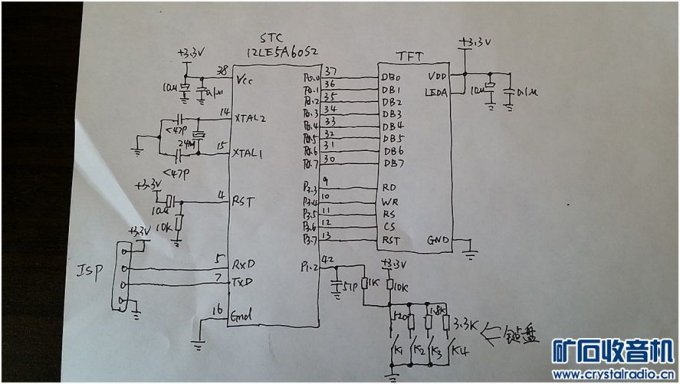 STC
12LE5A60S2
TFT
+3.3V
38
Vcc
10u
0.1u
14
XTAL2
<47P
24M
15
XTAL1
<47P
+3.3V
4
RST
10u
10K
+3.3V
ISP
5
RxD
7
TxD
16
Gnd
P0.0 37 DB0
P0.1 36 DB1
P0.2 35 DB2
P0.3 34 DB3
P0.4 33 DB4
P0.5 32 DB5
P0.6 31 DB6
P0.7 30 DB7
P3.3 9 RD
P3.4 10 WR
P3.5 11 RS
P3.6 12 CS
P3.7 13 RST
+3.3V
VDD
LEDA
10u
0.1u
GND
P1.2 42
51P
1K
+3.3V
10K
520
1.8K
3.3K
K1
K2
K3
K4
键盘
矿石收音机
www.crystalradio.cn